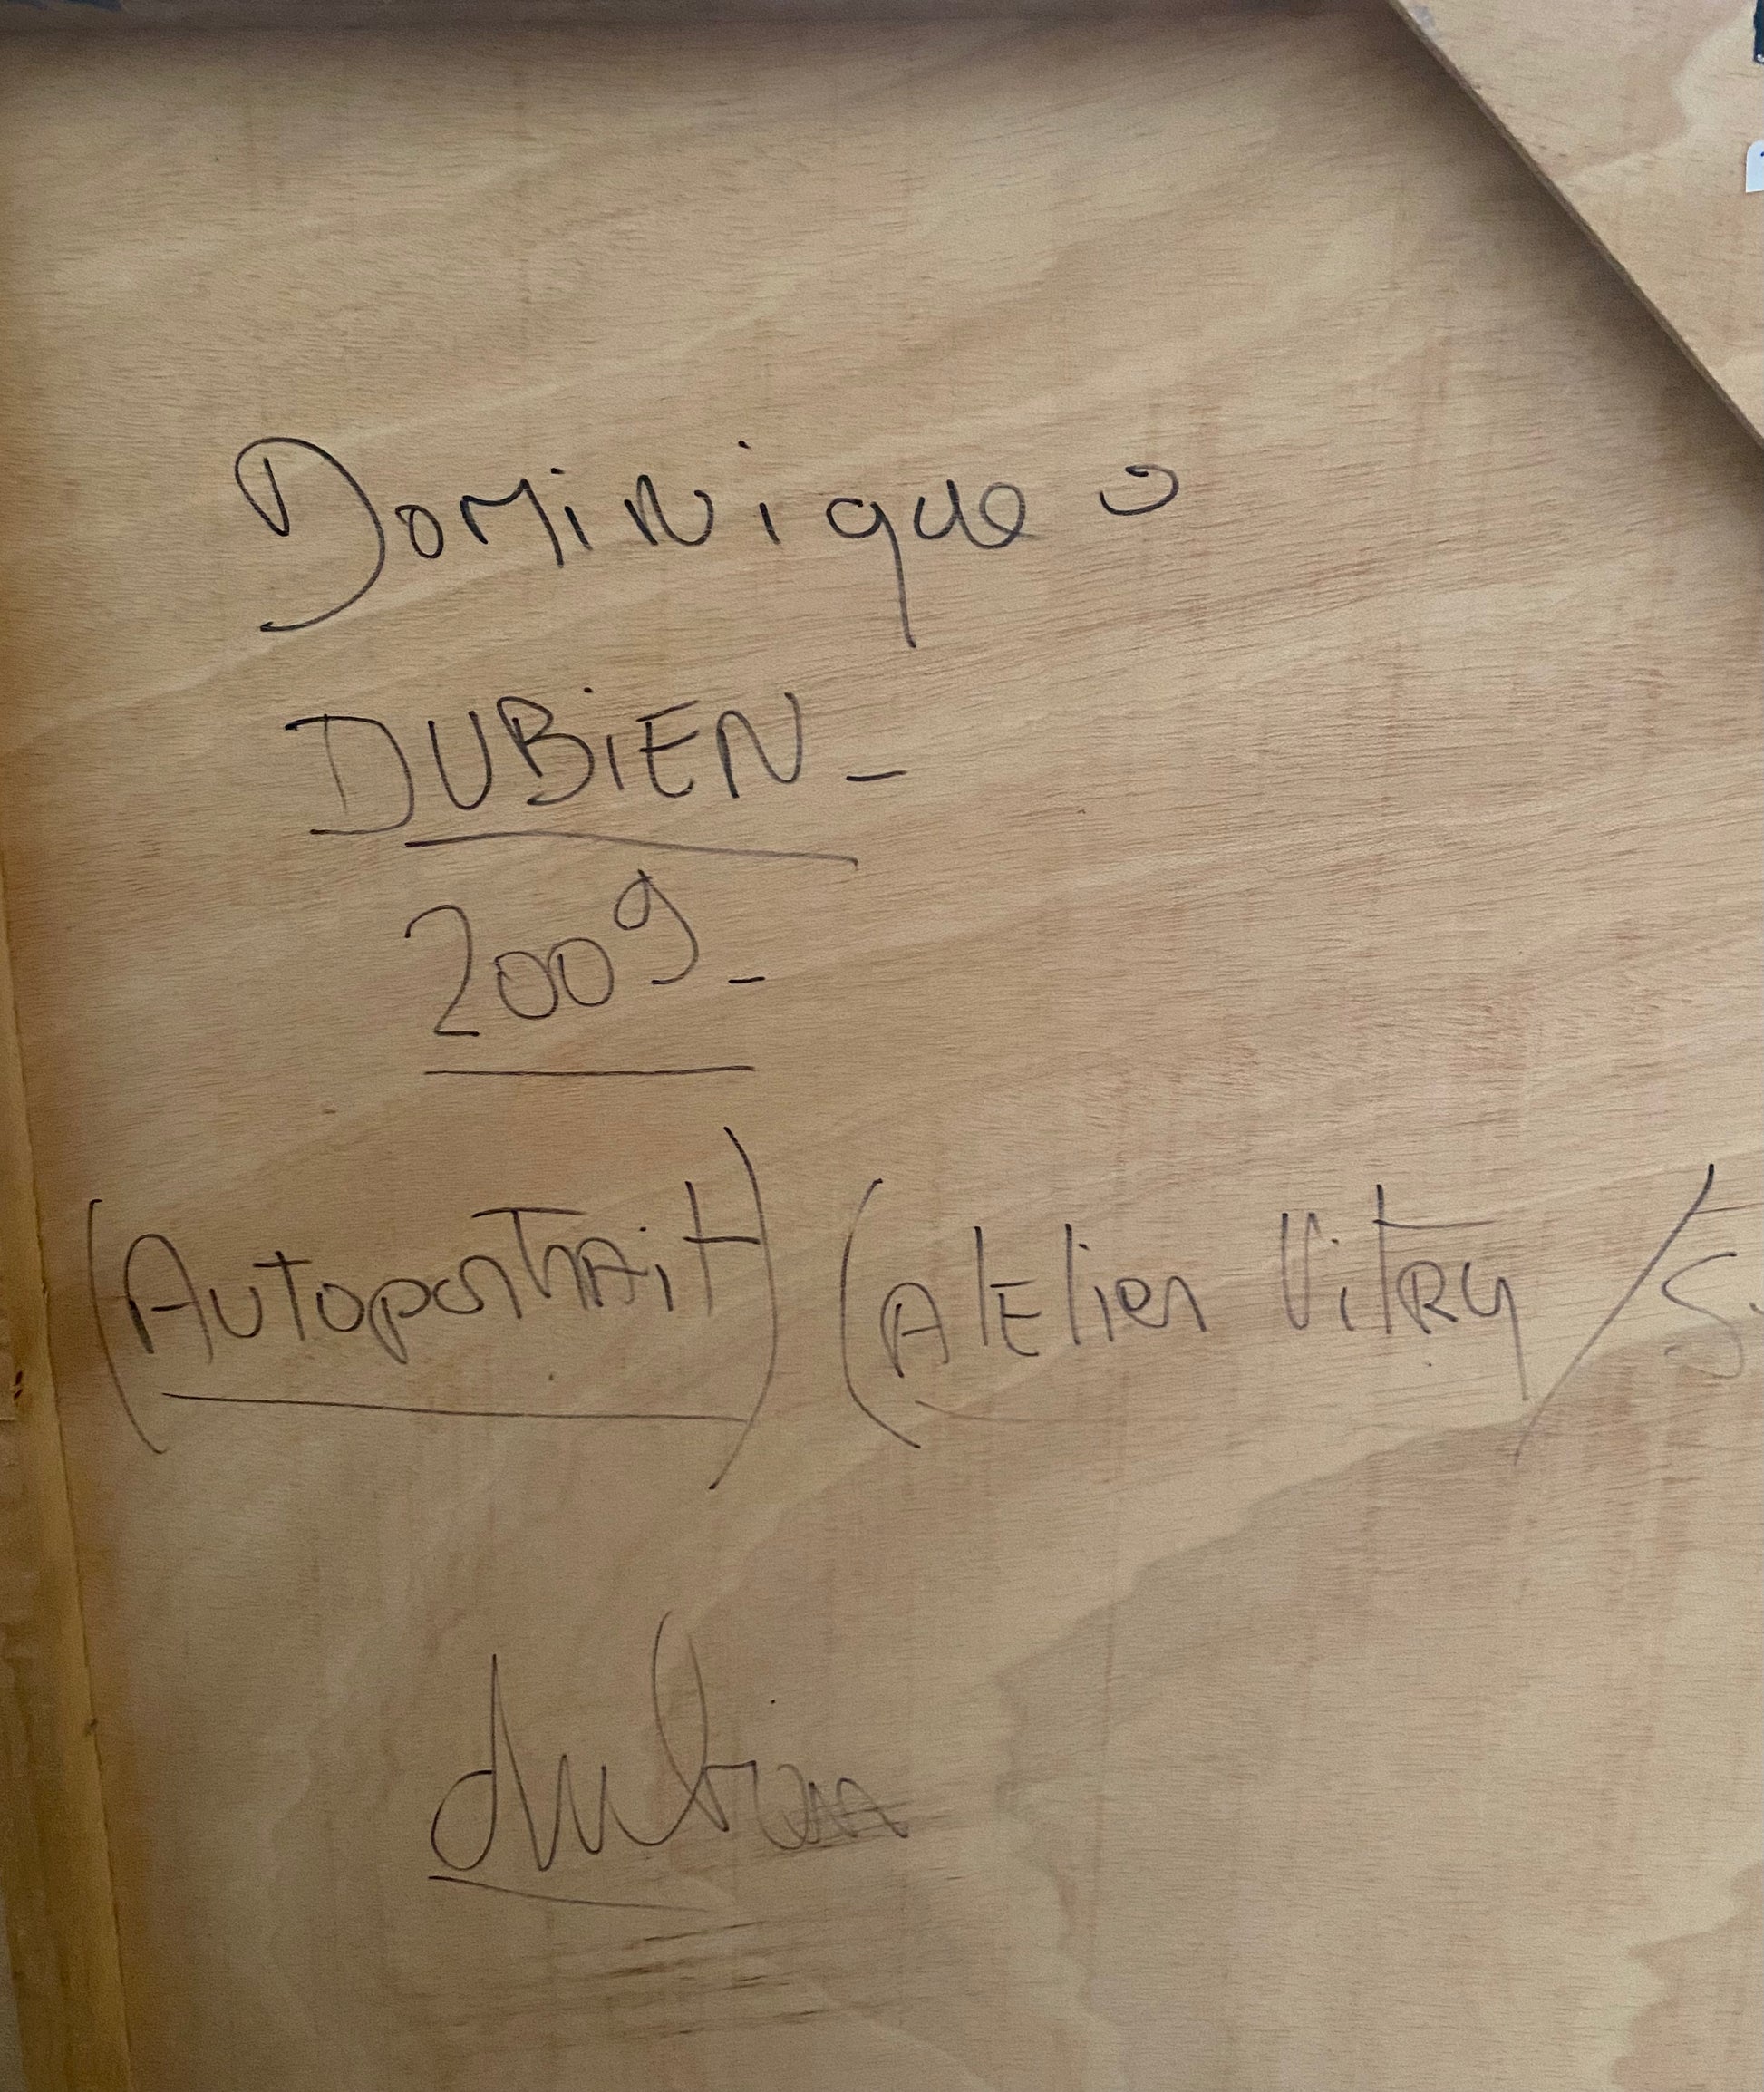 Dominique
DUBiEN_
2009_
(Autoportrait) (Atelier Vitry / S.
dubien